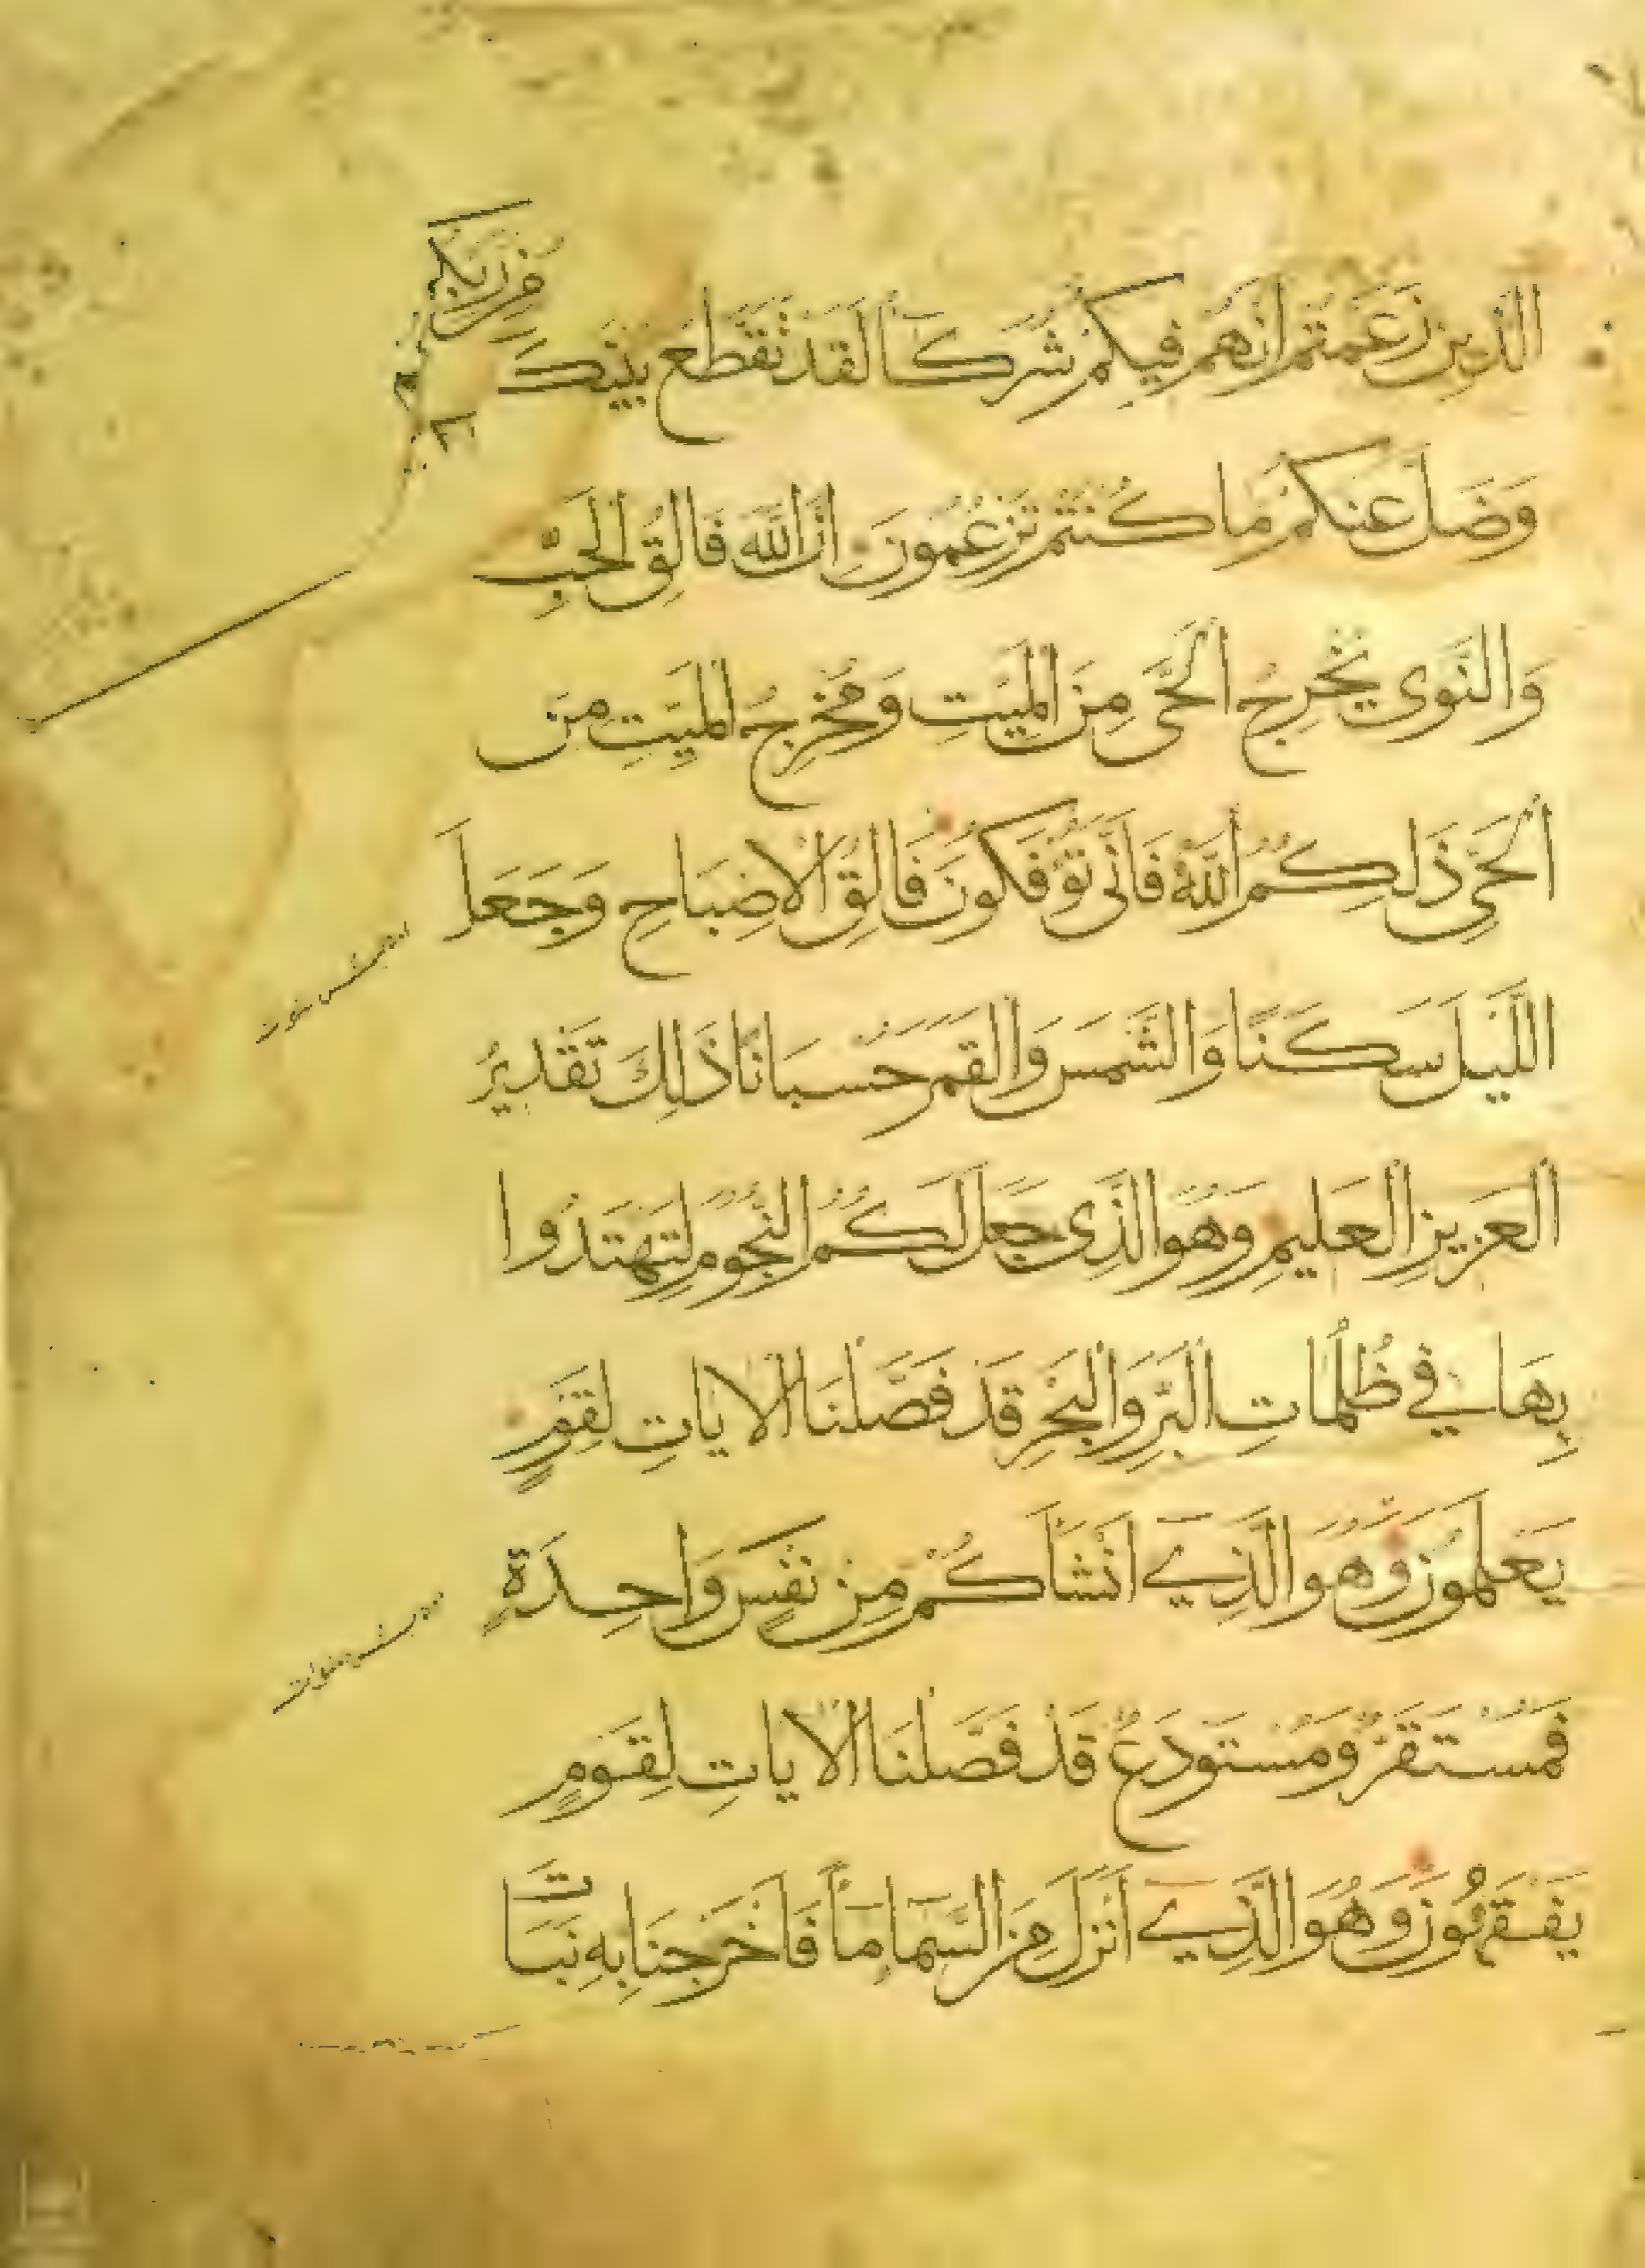 من ربكم
الذين زعمتم انهم فيكم شركآ لقد تقطع بينك
وَضَلَّ عَنكم مَا كُنْتُم تَزْعُمُونَ اِنَّ اللّٰهَ فَالِقُ الْحَبِّ
وَالنَّوٰى يُخْرِجُ الْحَىَّ مِنَ الْمَيِّتِ وَمُخْرِجُ الْمَيِّتِ مِنَ
الْحَىِّ ذَلِكُمُ اللّٰهُ فَاَنّٰى تُؤْفَكُونَ فَالِقُ الْاِصْبَاحِ وَجَعَلَ
اللَّيْلَ سَكَنًا وَالشَّمْسَ وَالْقَمَرَ حُسْبَانًا ذَلِكَ تَقْدِيرُ
الْعَزِيزِ الْعَلِيمِ وَهُوَ الَّذِى جَعَلَ لَكُمُ النُّجُومَ لِتَهْتَدُوا
بِهَا فِي ظُلُمَاتِ الْبَرِّ وَالْبَحْرِ قَدْ فَصَّلْنَا الْايَاتِ لِقَوْمٍ
يَعْلَمُونَ وَهُوَ الَّذِي اَنْشَاَكُمْ مِنْ نَفْسٍ وَاحِدَةٍ
فَمُسْتَقَرٌّ وَمُسْتَوْدَعٌ قَدْ فَصَّلْنَا الْايَاتِ لِقَوْمٍ
يَفْقَهُونَ وَهُوَ الَّذِي اَنْزَلَ مِنَ السَّمَا مَاً فَاَخْرَجْنَا بِهِ نَبَاتَ